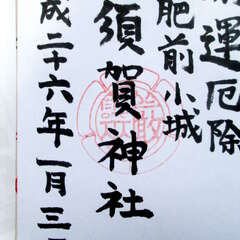 運厄除
肥前小城
須賀神社
成二十六年一月三